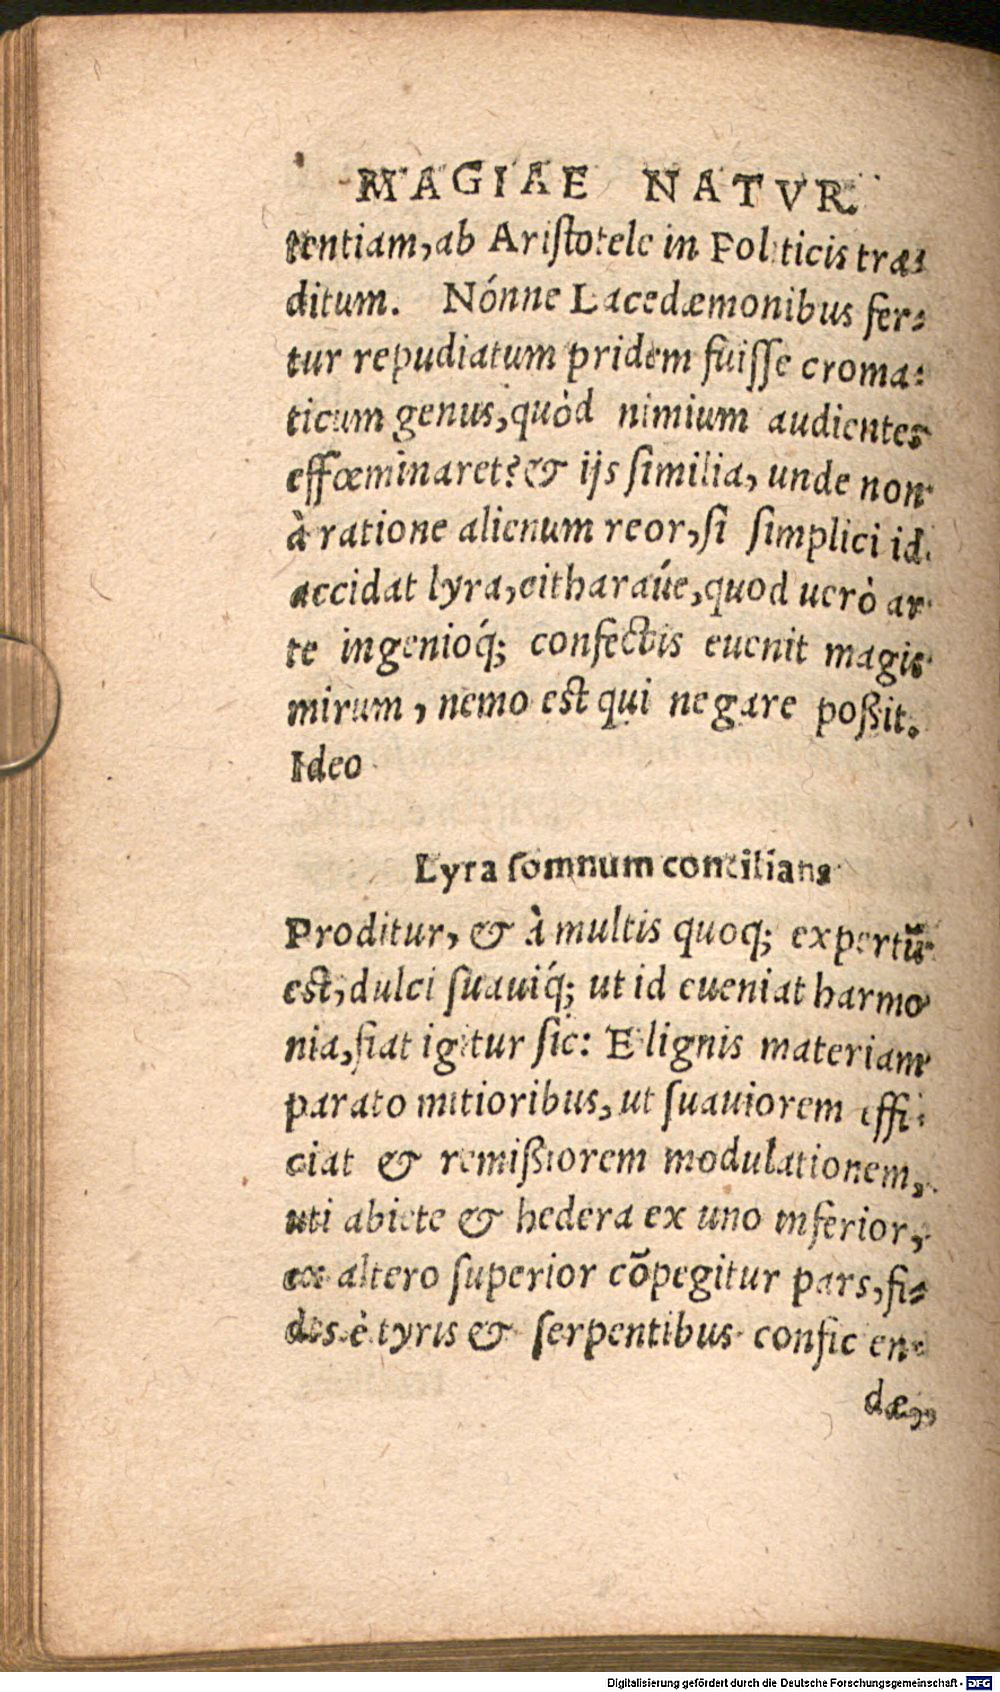 MAGIAE NATVR.
tentiam, ab Aristotele in Politicis træ-
ditum. Nónne Lacedæmonibus fer-
tur repudiatum pridem fuisse croma-
ticum genus, quòd nimium audientes
effœminaret? & ijs similia, unde non
à ratione alienum reor, si simplici id
accidat lyra, citharaúe, quod uerò ar
te ingenioq́; confectis euenit magis
mirum, nemo est qui negare poßit.
Ideo
Lyra somnum concilians
Proditur, & à multis quoq; expertũ
est, dulci suauiq́; ut id eueniat harmo
nia, fiat igitur sic: E lignis materiam
parato mitioribus, ut suauiorem effi-
ciat & remißiorem modulationem,
uti abiete & hedera ex uno inferior,
ex altero superior cõpegitur pars, fi-
des è tyris & serpentibus conficien-
dæ,
Digitalisierung gefördert durch die Deutsche Forschungsgemeinschaft - DFG